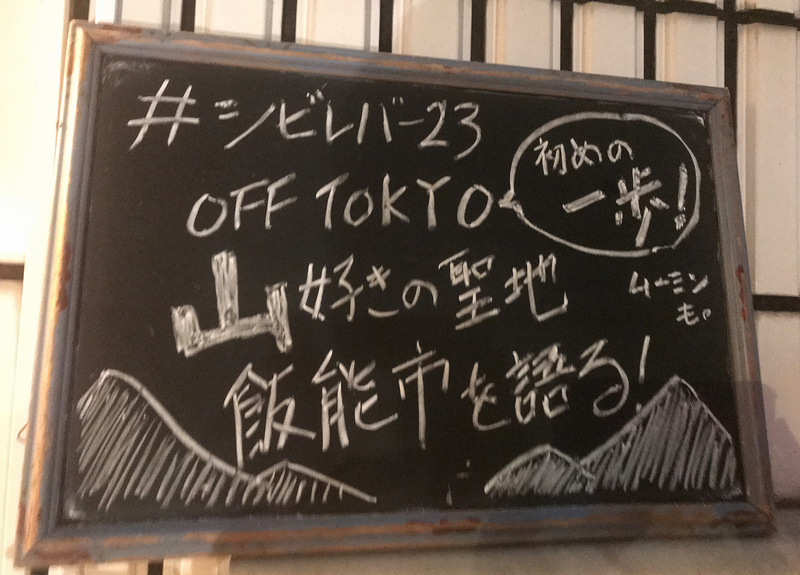 #シビレバー23
OFF TOKYO
初めの
一歩!
山好きの聖地
ムーミン
も。
飯能市を語る!